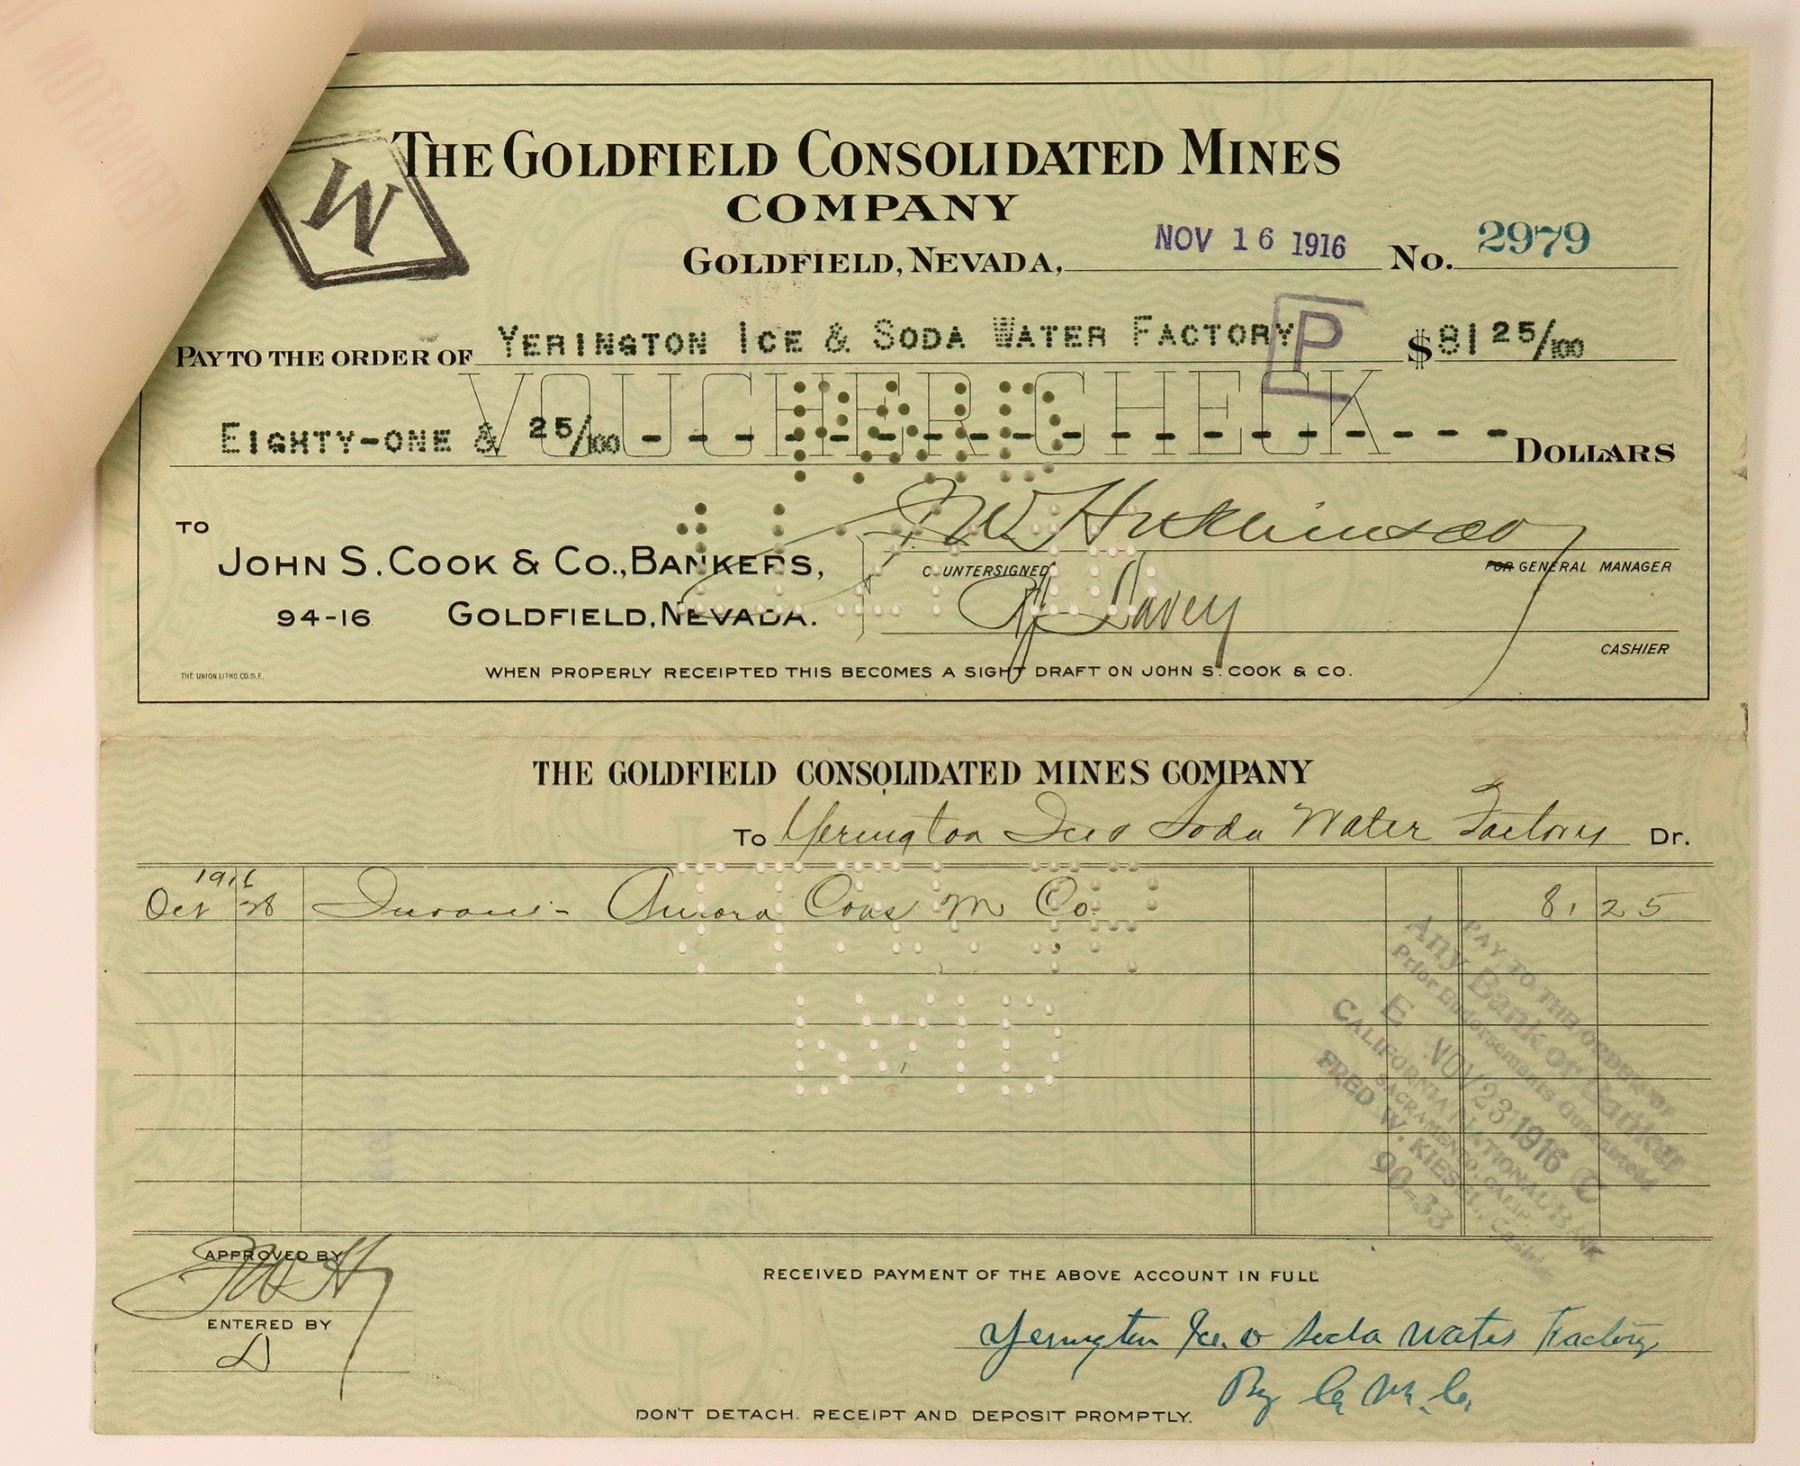 W
THE GOLDFIELD CONSOLIDATED MINES
COMPANY
GOLDFIELD, NEVADA, NOV 16 1916 No. 2979
PAY TO THE ORDER OF YERINGTON ICE & SODA WATER FACTORY P $81 25/100
VOUCHER CHECK
EIGHTY-ONE & 25/100 - - - - - - - - - - - - - - - - - - DOLLARS
PAID
TO
JOHN S. COOK & CO., BANKERS,
94-16 GOLDFIELD, NEVADA.
J W Hutchinson
FOR GENERAL MANAGER
COUNTERSIGNED
Davey
CASHIER
THE UNION LITHO. CO. S.F.
WHEN PROPERLY RECEIPTED THIS BECOMES A SIGHT DRAFT ON JOHN S. COOK & CO.
THE GOLDFIELD CONSOLIDATED MINES COMPANY
TO Yerington Ice & Soda Water Factory DR.
1916
Oct 28 Aurora Cons M Co. 81 25
PAY TO THE ORDER OF
Any Bank or Banker
Prior Endorsements Guaranteed
E NOV 23 1916 C
CALIFORNIA NATIONAL BANK
SACRAMENTO, CALIF.
FRED W. KIESEL, Cashier
90-33
APPROVED BY
J W H
ENTERED BY
D
RECEIVED PAYMENT OF THE ABOVE ACCOUNT IN FULL
Yerington Ice & Soda Water Factory
By
DON'T DETACH. RECEIPT AND DEPOSIT PROMPTLY.